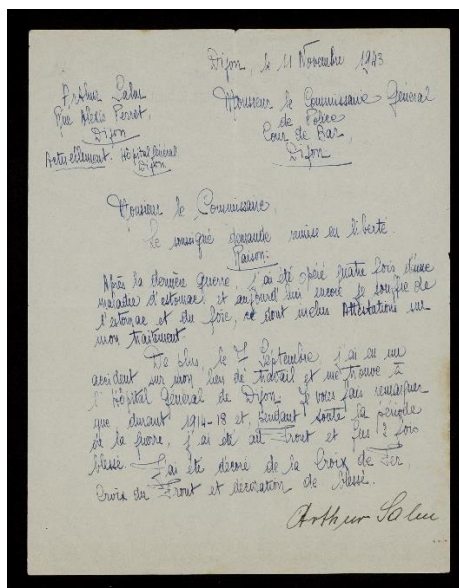 Dijon, le 11 Novembre 1943
Arthur Salm
Rue Alexis Perret,
Dijon
Actuellement. Hôpital Général
Dijon
Monsieur le Commissaire Général
de Police
Cour de Bar,
Dijon
Monsieur le Commissaire,
Le soussigné demande remise en liberté.
Raison:
Après la dernière guerre, j'ai été opéré quatre fois d'une
maladie d'estomac et aujourd'hui encore je souffre de
l'estomac et du foie, ce dont inclus Attestations sur
mon traitement.
De plus, le 7 Septembre j'ai eu un
accident sur mon lieu de travail et me trouve à
l'Hôpital Général de Dijon. Je vous fais remarquer
que durant 1914-18 et pendant toute la période
de la guerre, j'ai été au Front et fus 2 fois
blessé. J'ai été décoré de la Croix de Fer,
Croix du Front et décoration de blessé.
Arthur Salm